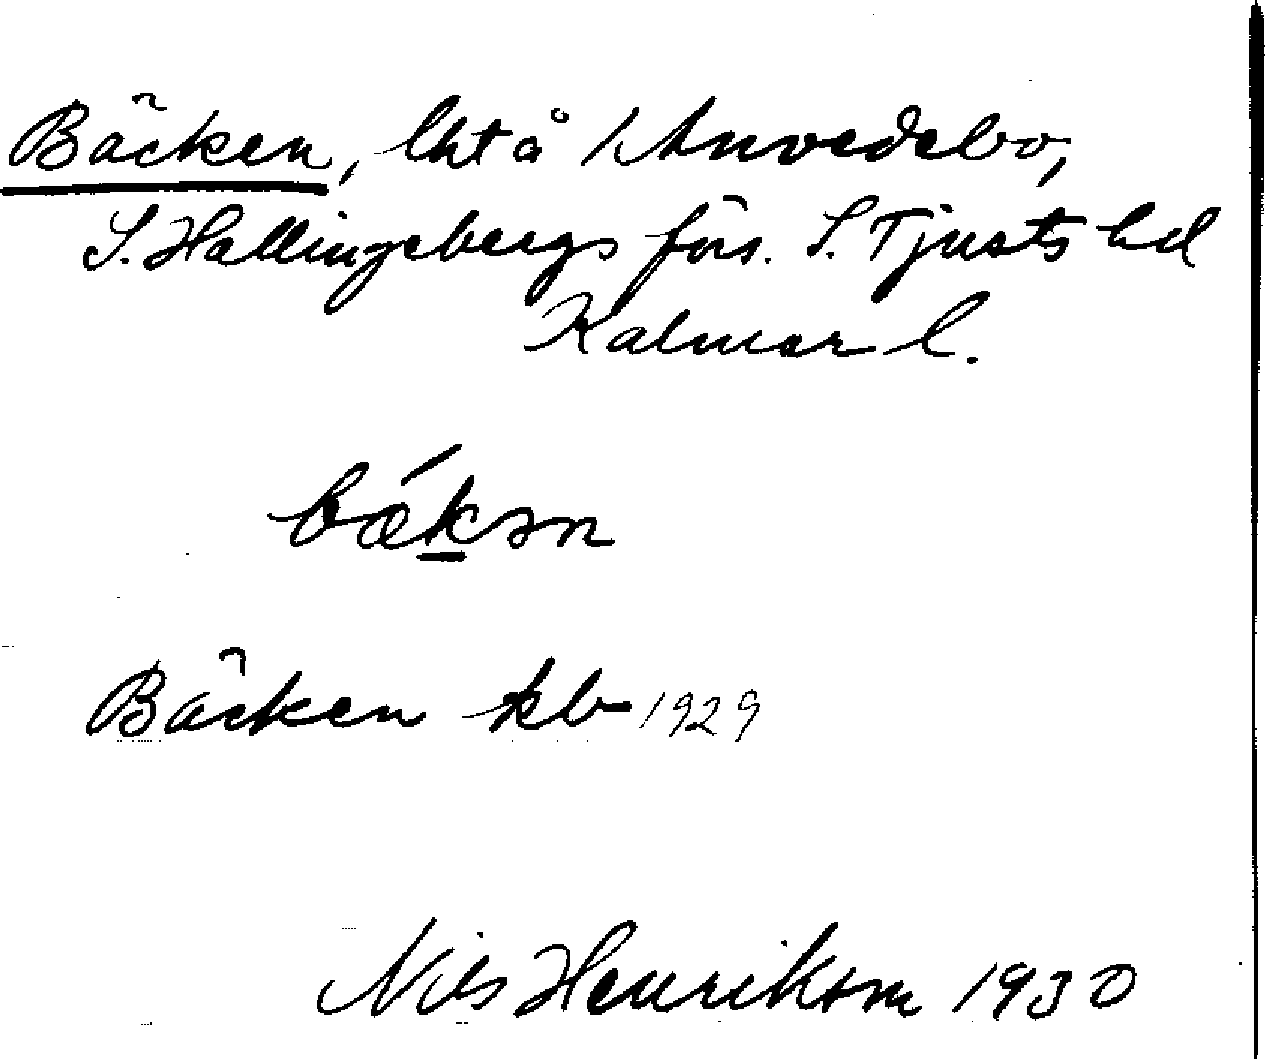 Bäcken, lht å 1 Anvedebo,
S. Hallingebergs förs. S. Tjusts hd
Kalmar l.
bǽkən
Bäcken kb 1929
Nils Henrikson 1930